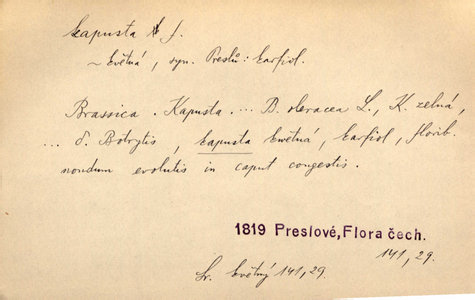 kapusta f.
~ květná, syn. Preslů: karfiol.
Brassica. Kapusta. ... B. oleracea L., K. zelná,
... δ. Botrytis, kapusta kwětná, karfiol, florib.
nondum evolutis in caput congestis.
1819 Preslové, Flora čech.
141, 29.
Sr. květný 141, 29.